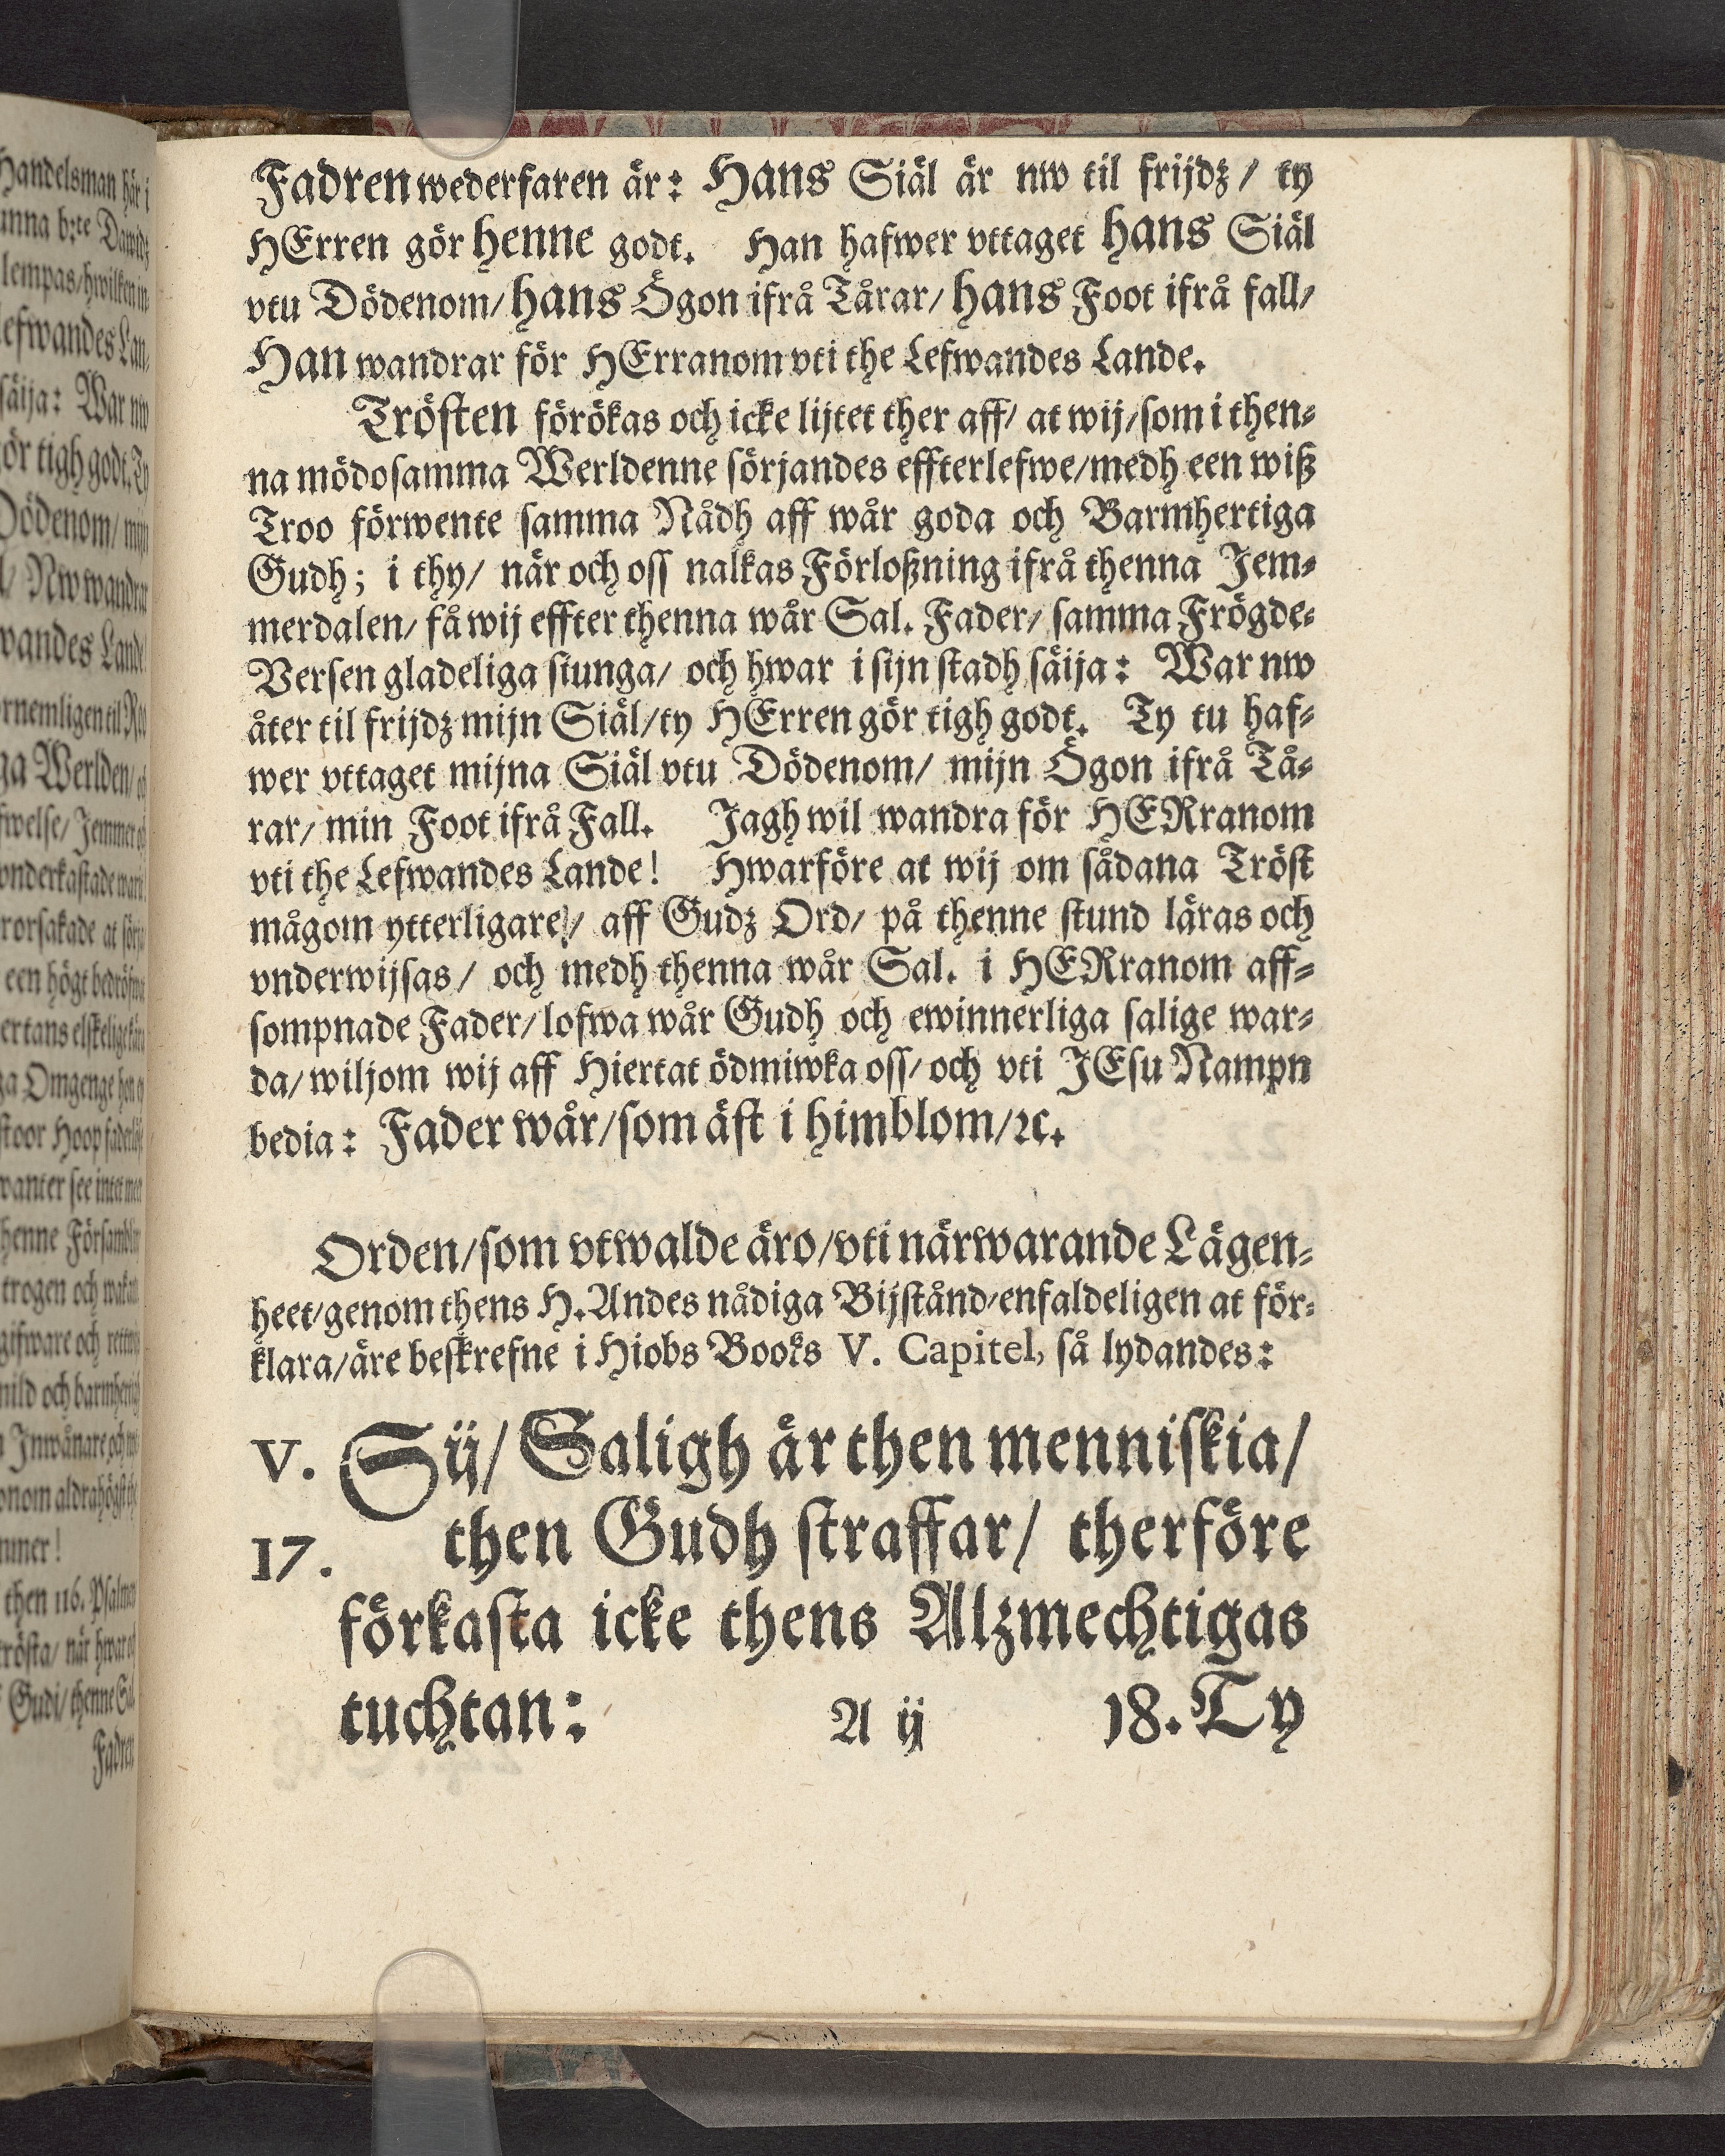 Fadren wederfaren är: Hans Siäl är nw til frijdz / ty
HErren gör henne godt. Han hafwer vttaget hans Siäl
vtu Dödenom/ hans Ögon ifrå Tårar/ hans Foot ifrå fall/
Han wandrar för HErranom vti the Lefwandes Lande.
Trösten förökas och icke lijtet ther aff/ at wij/som i then-
na mödosamma Werldenne sörjandes effterlefwe/medh een wiß
Troo förwente samma Nådh aff wår goda och Barmhertiga
Gudh; i thy/ när och oss nalkas Förloßning ifrå thenna Jem-
merdalen/ få wij effter thenna wår Sal. Fader/ samma Frögde-
Versen gladeliga siunga/ och hwar i sijn stadh säija: War nw
åter til frijdz mijn Siäl/ty HErren gör tigh godt. Ty tu haf-
wer vttaget mijna Siäl vtu Dödenom/ mijn Ögon ifrå Tå-
rar/ min Foot ifrå Fall. Jagh wil wandra för HERranom
vti the Lefwandes Lande! Hwarföre at wij om sådana Tröst
mågom ytterligare/ aff Gudz Ord/ på thenne stund läras och
vnderwijsas/ och medh thenna wår Sal. i HERranom aff-
sompnade Fader/ lofwa wår Gudh och ewinnerliga salige war-
da/ wiljom wij aff Hiertat ödmiwka oss/ och vti JEsu Nampn
bedia: Fader wår/som äst i himblom/ꝛc.
Orden/som vtwalde äro/vti närwarande Lägen-
heet/genom thens H. Andes nådiga Bijstånd/enfaldeligen at för-
klara/äre beskrefne i Hiobs Books V. Capitel, så lydandes:
V. Sij/ Saligh är then menniskia/
17. then Gudh straffar/ therföre
förkasta icke thens Alzmechtigas
tuchtan: A ij 18. Ty